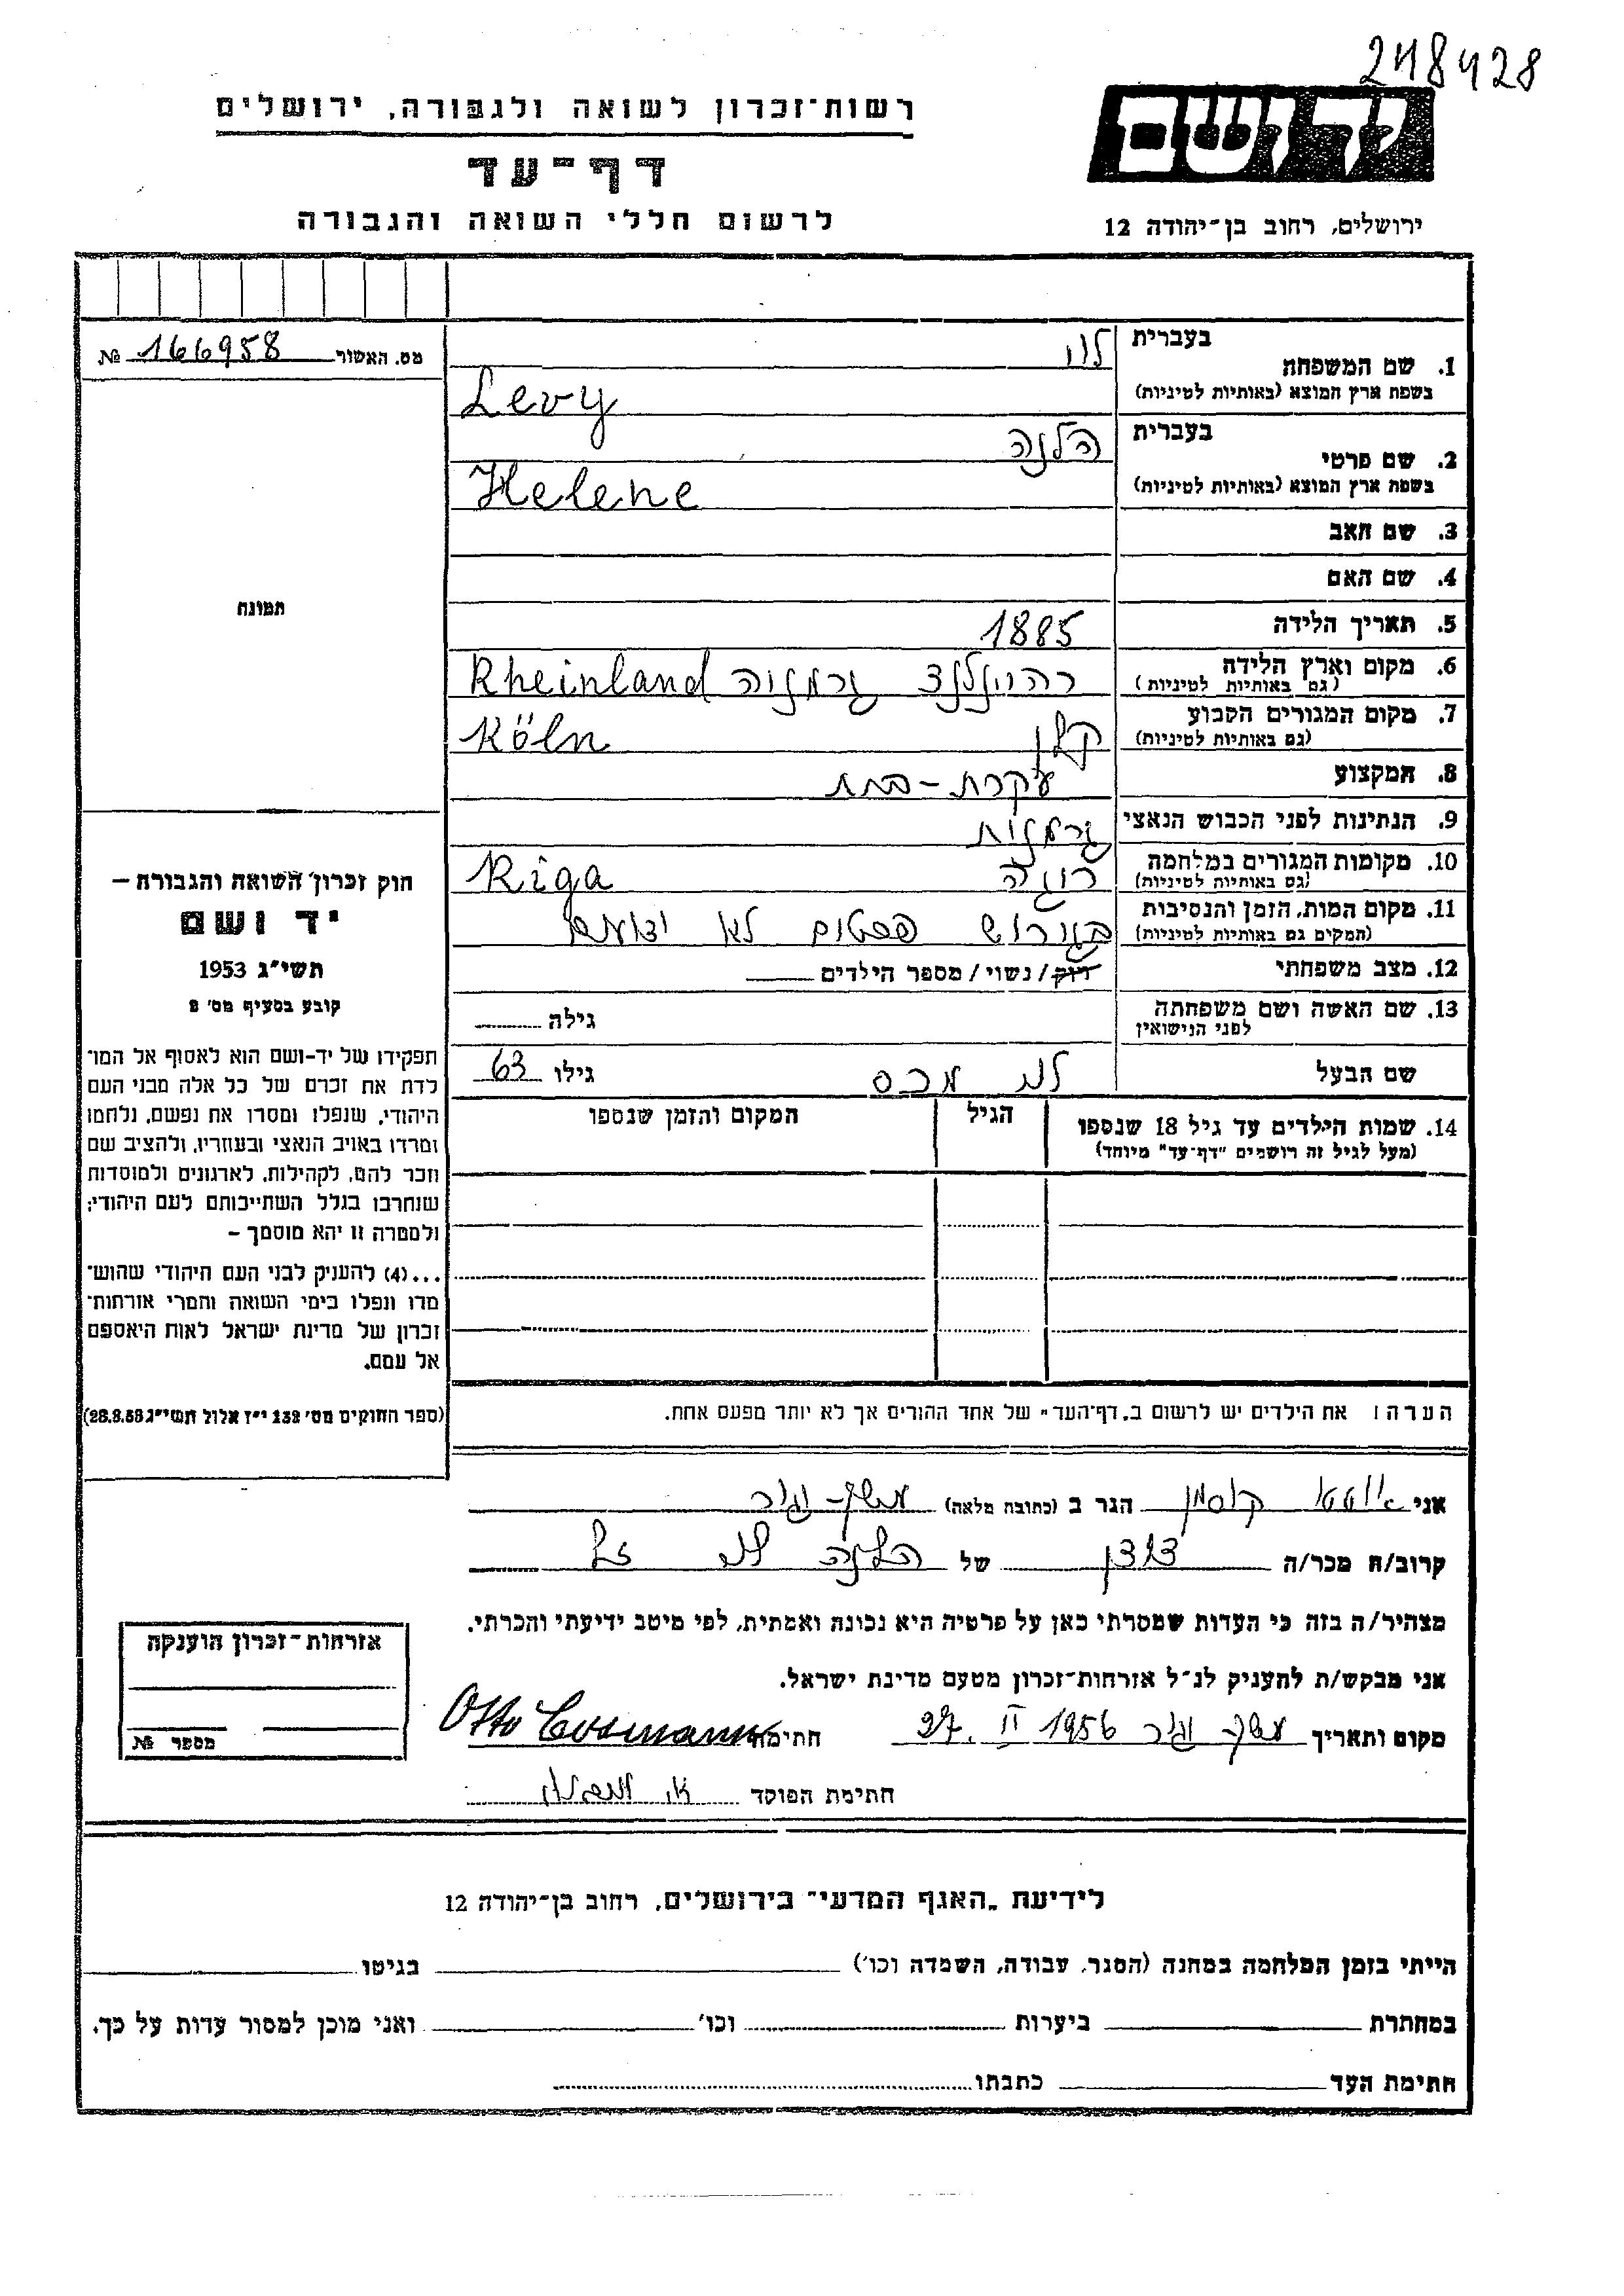 248428
ידושם
רשות־זכרון לשואה ולגבורה, ירושלים
דף־עד
לרשום חללי השואה והגבורה
ירושלים, רחוב בן־יהודה 12
מס. האשור 166958 №
בעברית לוי
1. שם המשפחה
בשפת ארץ המוצא (באותיות לטיניות) Levy
בעברית הלנה
2. שם פרטי
בשפת ארץ המוצא (באותיות לטיניות) Helene
3. שם האב
4. שם האם
תמונה
5. תאריך הלידה 1885
6. מקום וארץ הלידה רהיינלנד גרמניה Rheinland
(גם באותיות לטיניות)
7. מקום המגורים הקבוע קלן Köln
(גם באותיות לטיניות)
8. המקצוע עקרת-בית
9. הנתינות לפני הכבוש הנאצי גרמנית
10. מקומות המגורים במלחמה ריגה Riga
(גם באותיות לטיניות)
11. מקום המות, הזמן והנסיבות בגירוש לא
(המקום גם באותיות לטיניות)
12. מצב משפחתי רוק/נשוי/מספר הילדים
13. שם האשה ושם משפחתה גילה
לפני הנישואין
שם הבעל לוי מכס גילו 63
14. שמות הילדים עד גיל 18 שנספו הגיל המקום והזמן שנספו
(מעל לגיל זה רושמים "דף־עד" מיוחד)
חוק זכרון השואה והגבורה –
יד ושם
תשי"ג 1953
קובע בסעיף מס' 2
תפקידו של יד-ושם הוא לאסוף אל המו־
לדת את זכרם של כל אלה מבני העם
היהודי, שנפלו ומסרו את נפשם, נלחמו
ומרדו באויב הנאצי ובעוזריו, ולהציב שם
וזכר להם, לקהילות, לארגונים ולמוסדות
שנחרבו בגלל השתייכותם לעם היהודי;
ולמטרה זו יהא מוסמך –
...(4) להעניק לבני העם היהודי שהוש־
מדו ונפלו בימי השואה והמרי אזרחות־
זכרון של מדינת ישראל לאות היאספם
אל עמם.
(ספר החוקים מס' 132 י"ז אלול תשי"ג 28.8.53)
הערה: את הילדים יש לרשום ב„דף־העד" של אחד ההורים אך לא יותר מפעם אחת.
אני קוסמן הגר ב (כתובת מלאה)
קרוב/ה מכר/ה של הלנה לוי ז"ל
מצהיר/ה בזה כי העדות שמסרתי כאן על פרטיה היא נכונה ואמתית, לפי מיטב ידיעתי והכרתי.
אני מבקש/ת להעניק לנ"ל אזרחות־זכרון מטעם מדינת ישראל.
מקום ותאריך 27. II 1956 חתימה Otto Cosmann
חתימת הפוקד
אזרחות־זכרון הוענקה
מספר №
לידיעת „האגף המדעי" בירושלים, רחוב בן־יהודה 12
הייתי בזמן המלחמה במחנה (הסגר, עבודה, השמדה וכו') בגיטו
במחתרת ביערות וכו' ואני מוכן למסור עדות על כך.
חתימת העד כתבתו